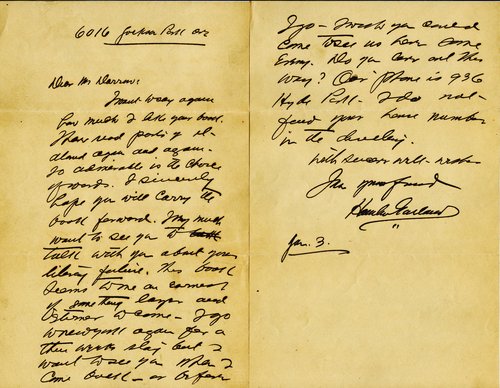 6016 Jackson Park Ave
Dear Mr Darrow:
I want to say again
how much I like your book.
I have read parts of it
aloud again and again.
So admirable is the choice
of words. I sincerely
hope you will carry the
book forward. I very much
want to see you &
talk with you about your
literary future. This book
seems to me an earnest
of something larger and
to come - I go
to New York again for a
three weeks stay but I
want to see you when I
come back - or before
I go - I wish you could
come to see us here some
Evening. Do you ever get out this
way? Our phone is 936
Hyde Park - I do not
find your house number
in the directory.
With sincere well-wishes
I am your friend
Hamlin Garland
Jan. 3.